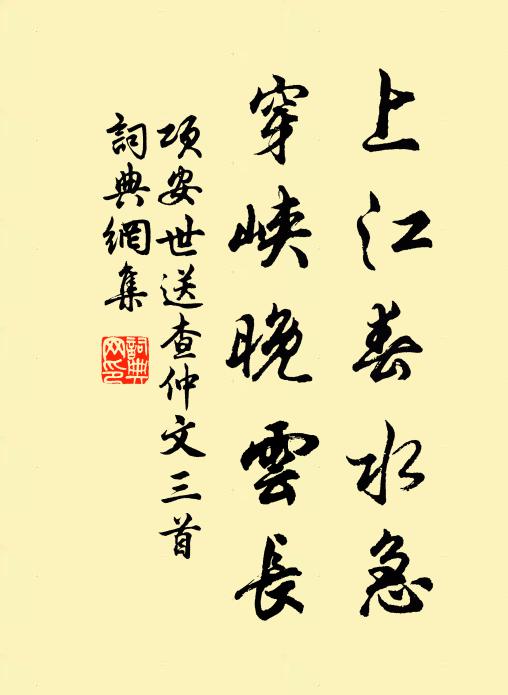 上江春水急
穿峽晚雲長
項安世送查仲文三首
詞典網集
詞典网印